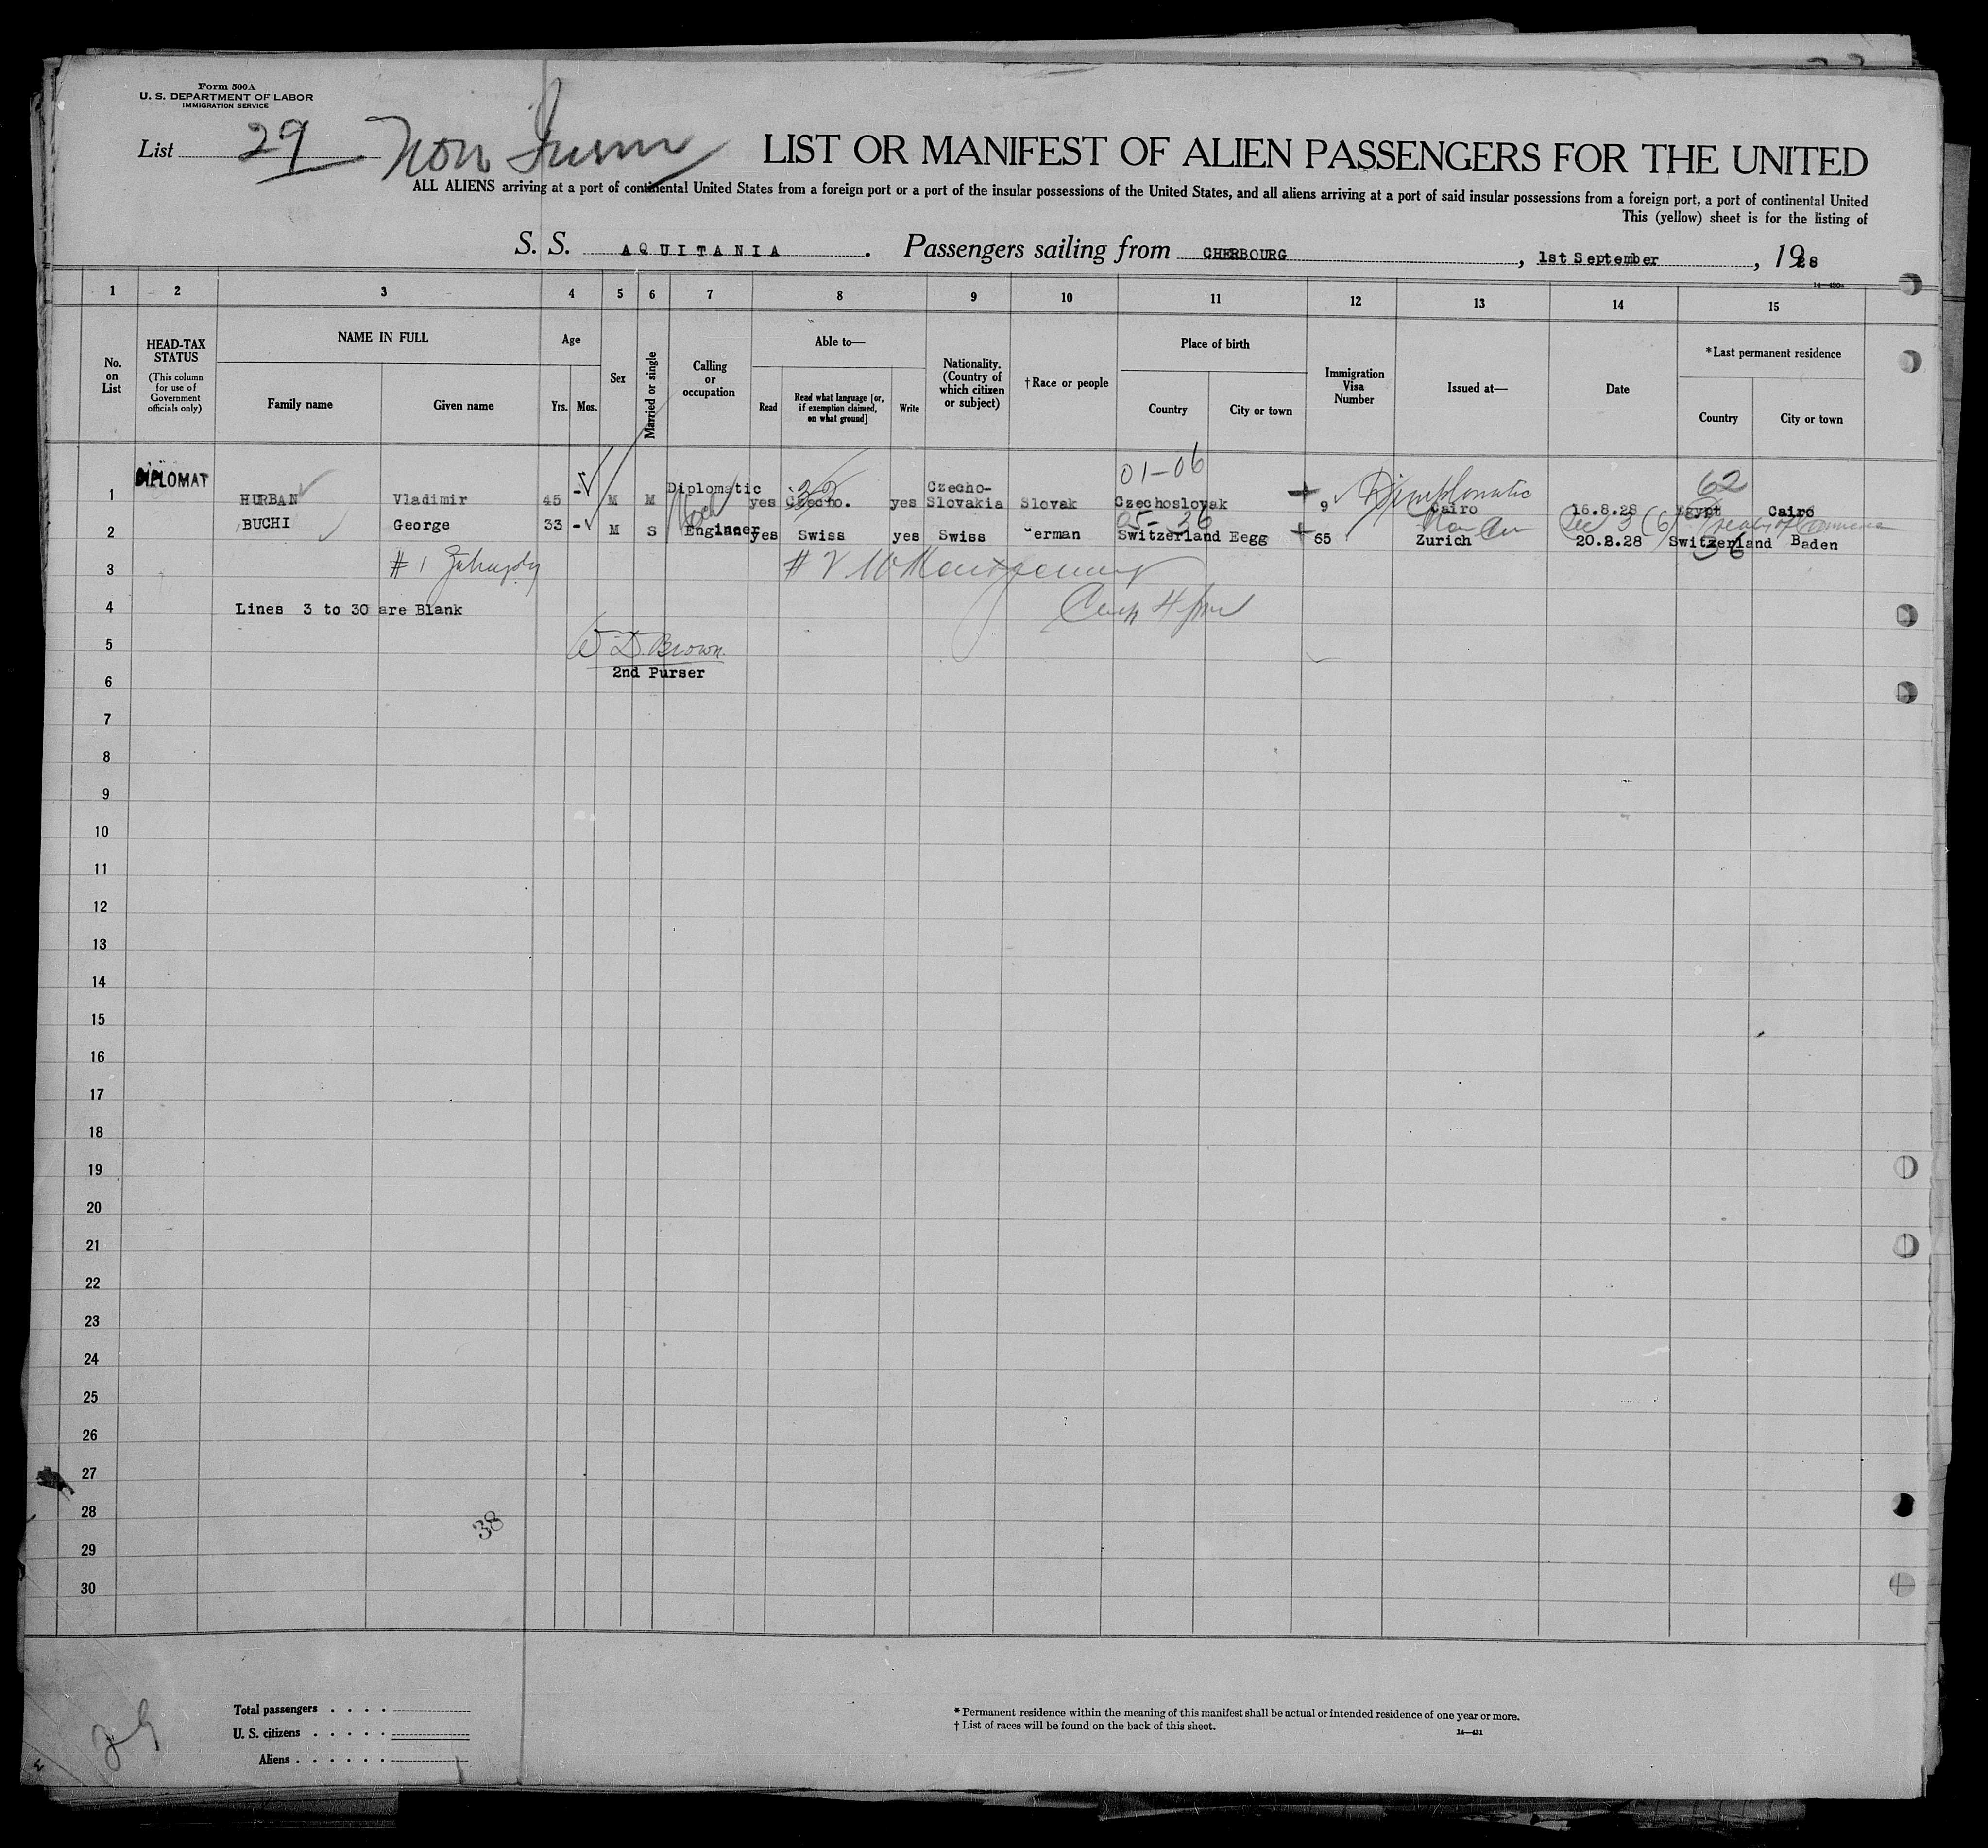 Form 500A
U. S. DEPARTMENT OF LABOR
IMMIGRATION SERVICE
List 29 Non Imm
LIST OR MANIFEST OF ALIEN PASSENGERS FOR THE UNITED
ALL ALIENS arriving at a port of continental United States from a foreign port or a port of the insular possessions of the United States, and all aliens arriving at a port of said insular possessions from a foreign port, a port of continental United
This (yellow) sheet is for the listing of
S. S. AQUITANIA . Passengers sailing from CHERBOURG , 1st September , 1928
1 2 3 4 5 6 7 8 9 10 11 12 13 14 15
No. on List
HEAD-TAX STATUS
(This column for use of Government officials only)
NAME IN FULL
Family name Given name
Age
Yrs. Mos.
Sex
Married or single
Calling or occupation
Able to—
Read Read what language [or, if exemption claimed, on what ground] Write
Nationality. (Country of which citizen or subject)
†Race or people
Place of birth
Country City or town
Immigration Visa Number
Issued at—
Date
*Last permanent residence
Country City or town
01-06 62
1 DIPLOMAT HURBAN Vladimir 45 - M M Diplomatic yes Czecho. yes Czecho-Slovakia Slovak Czechoslovak 9 Cairo 16.8.28 Egypt Cairo
05-36 Sec 3 (6) Treaty of Commerce
2 BUCHI George 33 - M S Engineer yes Swiss yes Swiss German Switzerland Eegg 65 Zurich 20.8.28 Switzerland Baden
36
3 # 1 # 2
4 Lines 3 to 30 are Blank
5 W D. Brown.
2nd Purser
6
7
8
9
10
11
12
13
14
15
16
17
18
19
20
21
22
23
24
25
26
27
28
38
29
30
Total passengers . . . .
U. S. citizens . . . . .
Aliens . . . . . .
* Permanent residence within the meaning of this manifest shall be actual or intended residence of one year or more.
† List of races will be found on the back of this sheet.
14—431